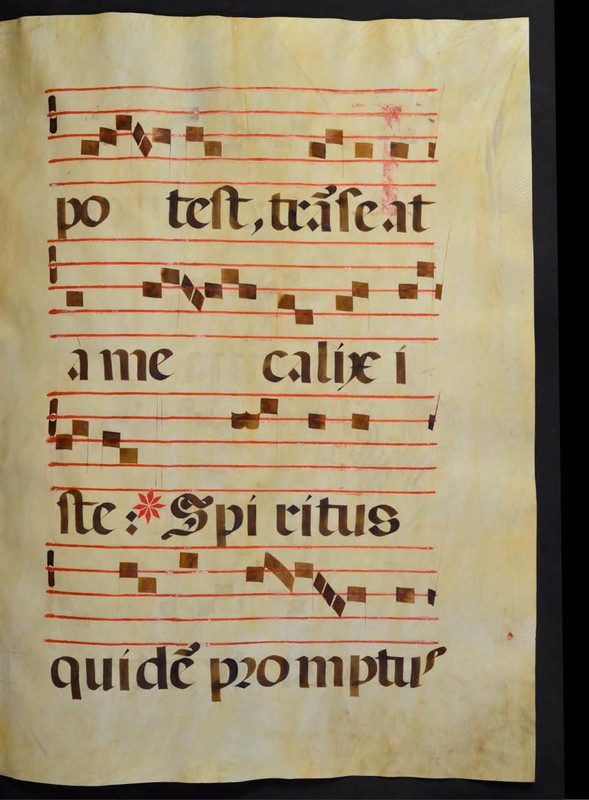 po test, trãseat
a me calix i
ste: Spi ritus
quidẽ promptus